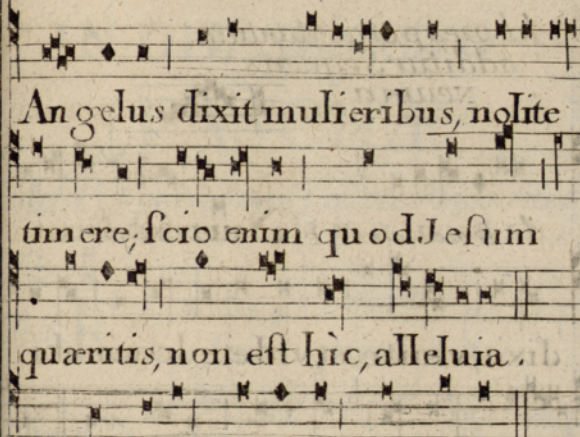 An gelus dixit mulieribus, nolite
timere; ſcio enim quod Jeſum
quæritis, non eſt hìc, alleluia.